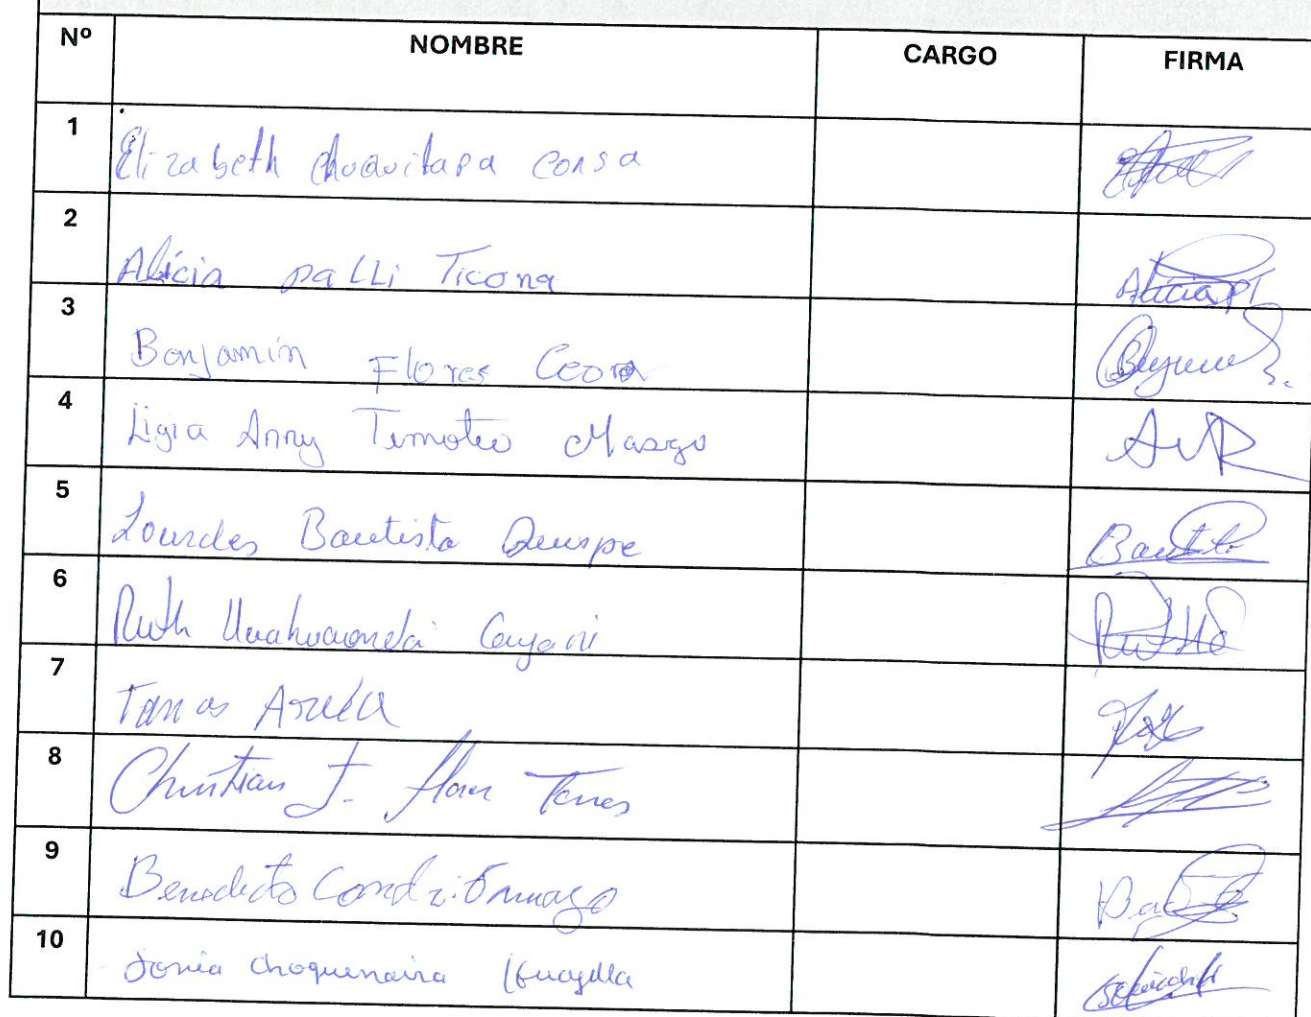 Nº NOMBRE CARGO FIRMA
1 Elizabeth Choquitapa Consa
2 Alicia palli Ticona Alicia PT
3 Benjamin Flores Ccora
4 Ligia Anny Timoteo Masgo
5 Lourdes Bautista Quispe Bautista
6 Ruth
7 Arela
8 Christian J. Flores Torres
9 Benedicto Condori
10 Sonia Choquenaira